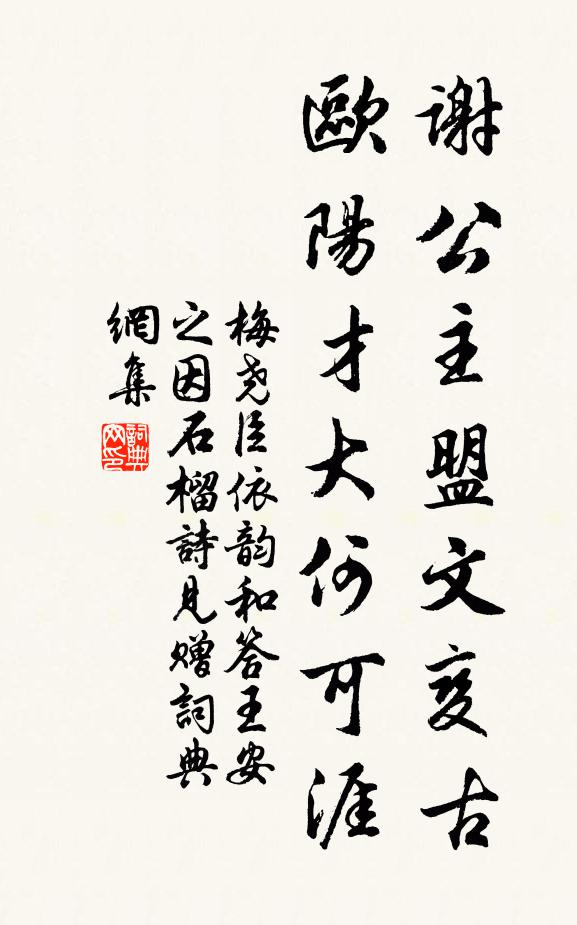 謝公主盟文變古
歐陽才大何可涯
梅尭臣依韵和答王安
之因石榴詩見贈詞典
網集
詞典网印